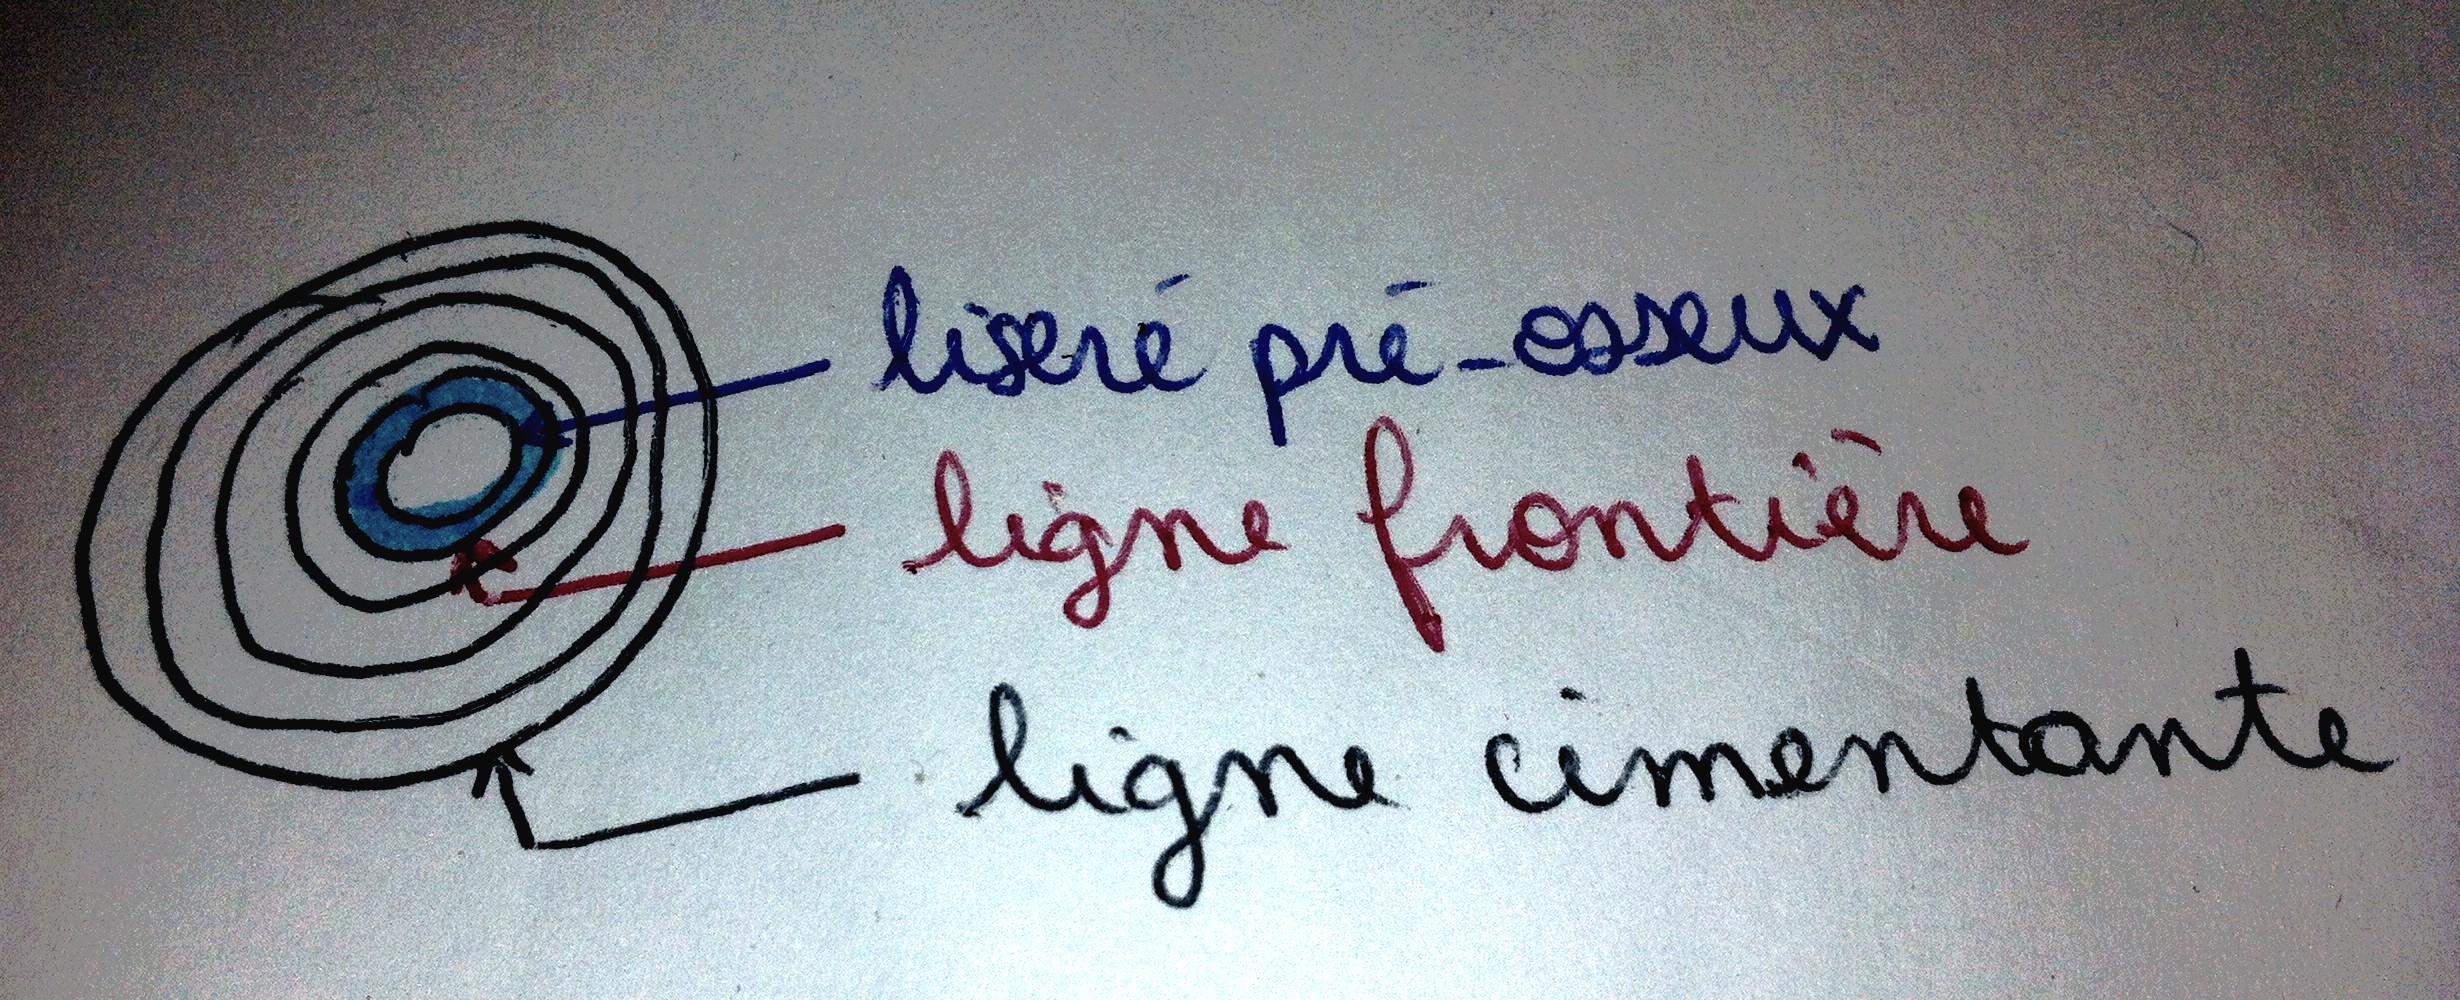 liseré pré-osseux
ligne frontière
ligne cimentante